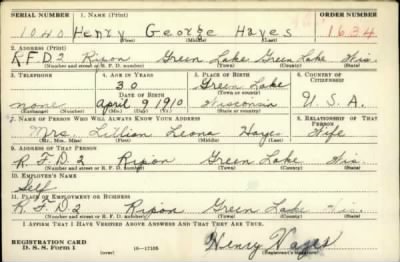 SERIAL NUMBER 1. NAME (Print) ORDER NUMBER
1040 Henry George Hayes 1634
(First) (Middle) (Last)
2. ADDRESS (Print)
R.F.D.2 Ripon Green Lake Green Lake Wis.
(Number and street or R. F. D. number) (Town) (County) (State)
3. TELEPHONE 4. AGE IN YEARS 5. PLACE OF BIRTH 6. COUNTRY OF CITIZENSHIP
30 Green Lake
DATE OF BIRTH (Town or county)
none April 9 1910 Wisconsin U. S. A.
(Exchange) (Number) (Mo.) (Day) (Yr.) (State or country)
7. NAME OF PERSON WHO WILL ALWAYS KNOW YOUR ADDRESS 8. RELATIONSHIP OF THAT PERSON
Mrs. Lillian Leona Hayes Wife
(Mr., Mrs., Miss) (First) (Middle) (Last)
9. ADDRESS OF THAT PERSON
R.F.D.2 Ripon Green Lake Wis.
(Number and street or R. F. D. number) (Town) (County) (State)
10. EMPLOYER'S NAME
Self
11. PLACE OF EMPLOYMENT OR BUSINESS
R.F.D.2 Ripon Green Lake Wis.
(Number and street or R. F. D. number) (Town) (County) (State)
I AFFIRM THAT I HAVE VERIFIED ABOVE ANSWERS AND THAT THEY ARE TRUE.
REGISTRATION CARD
D. S. S. Form 1 16—17105 Henry Hayes
(Registrant's signature)